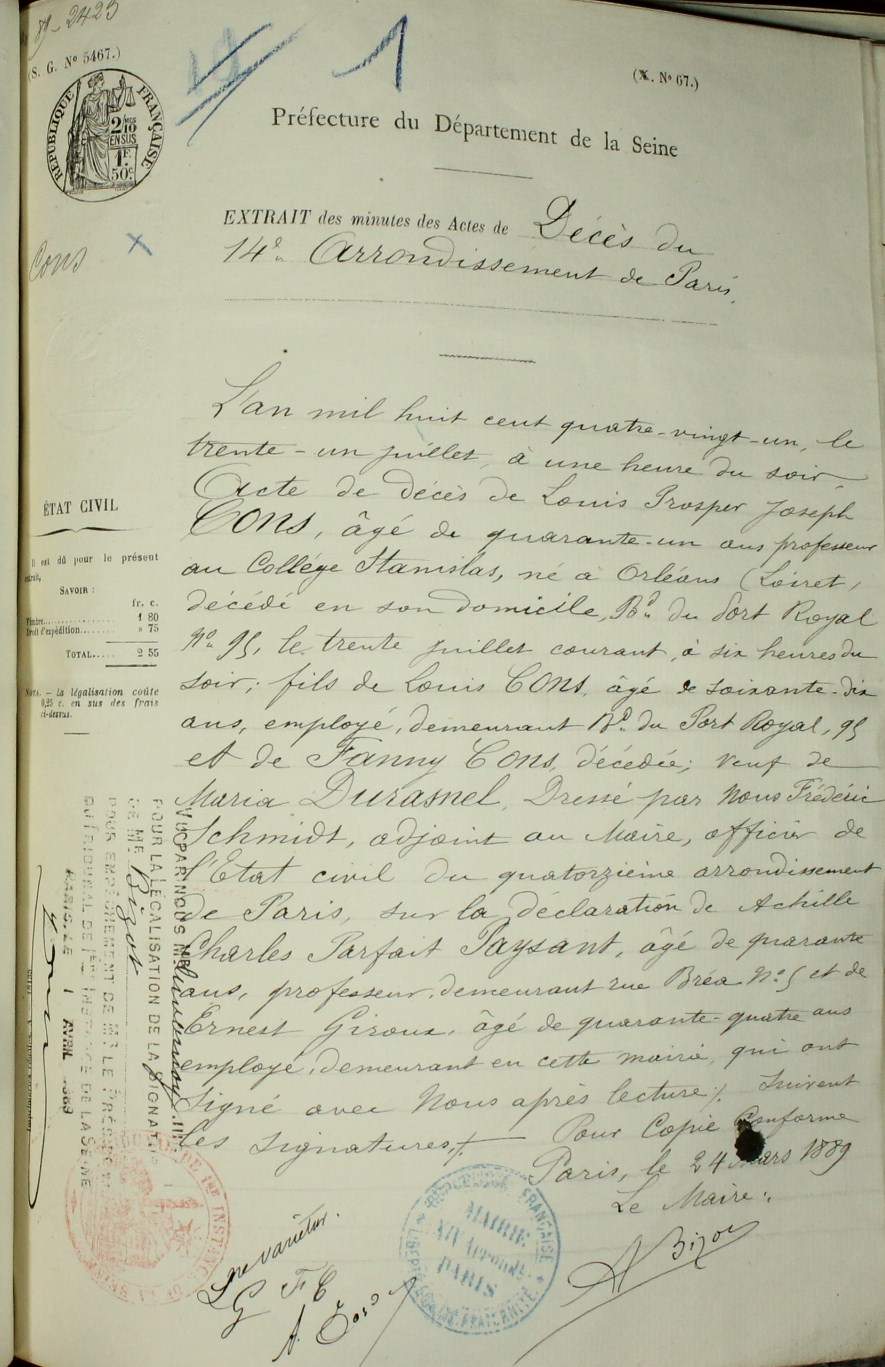 89-2423
(S. G. Nº 5467.)
(X. Nº 67.)
1
RÉPUBLIQUE FRANÇAISE
2/10
EN SUS
1F
50c
Préfecture du Département de la Seine
EXTRAIT des minutes des Actes de Décès du
14e Arrondissement de Paris.
Cons
L'an mil huit cent quatre-vingt-un, le
trente-un juillet, à une heure du soir.
Acte de décès de Louis Prosper Joseph
CONS, âgé de quarante-un ans professeur
au Collége Stanislas, né à Orléans (Loiret,
décédé en son domicile, Bd du Port Royal
Nº 95, le trente juillet courant, à six heures du
soir; fils de Louis CONS, âgé de soixante-dix
ans, employé, demeurant Bd du Port Royal, 95
et de Fanny Cons, décédée; veuf de
Maria Durasnel, Dressé par Nous Frédéric
Schmidt, adjoint au Maire, officier de
l'Etat civil du quatorzième arrondissement
de Paris, sur la déclaration de Achille
Charles Parfait Paysant, âgé de quarante
ans, professeur, demeurant rue Bréa Nº 5 et de
Ernest Giroux, âgé de quarante-quatre ans
employé, demeurant en cette mairie, qui ont
signé avec Nous après lecture /. Suivent
les signatures /.
Pour Copie Conforme
Paris, le 24 Mars 1889
Le Maire:
A Bizot
ÉTAT CIVIL
Il est dû pour le présent
extrait,
SAVOIR :
fr. c.
Timbre 1 80
Droit d'expédition » 75
TOTAL 2 55
NOTA. — La légalisation coûte
0,25 c. en sus des frais
ci-dessus.
VU PAR NOUS M.
POUR LA LÉGALISATION DE LA SIGNATURE
DE MR Bizot
POUR EMPÊCHEMENT DE MR LE PRÉSIDENT
DU TRIBUNAL DE 1ère INSTANCE DE LA SEINE
PARIS, LE 1 AVRIL 1889
RÉPUBLIQUE FRANÇAISE
MAIRIE
XIV Arrondt.
PARIS
LIBERTÉ ÉGALITÉ FRATERNITÉ
Ne varietur.
G F C